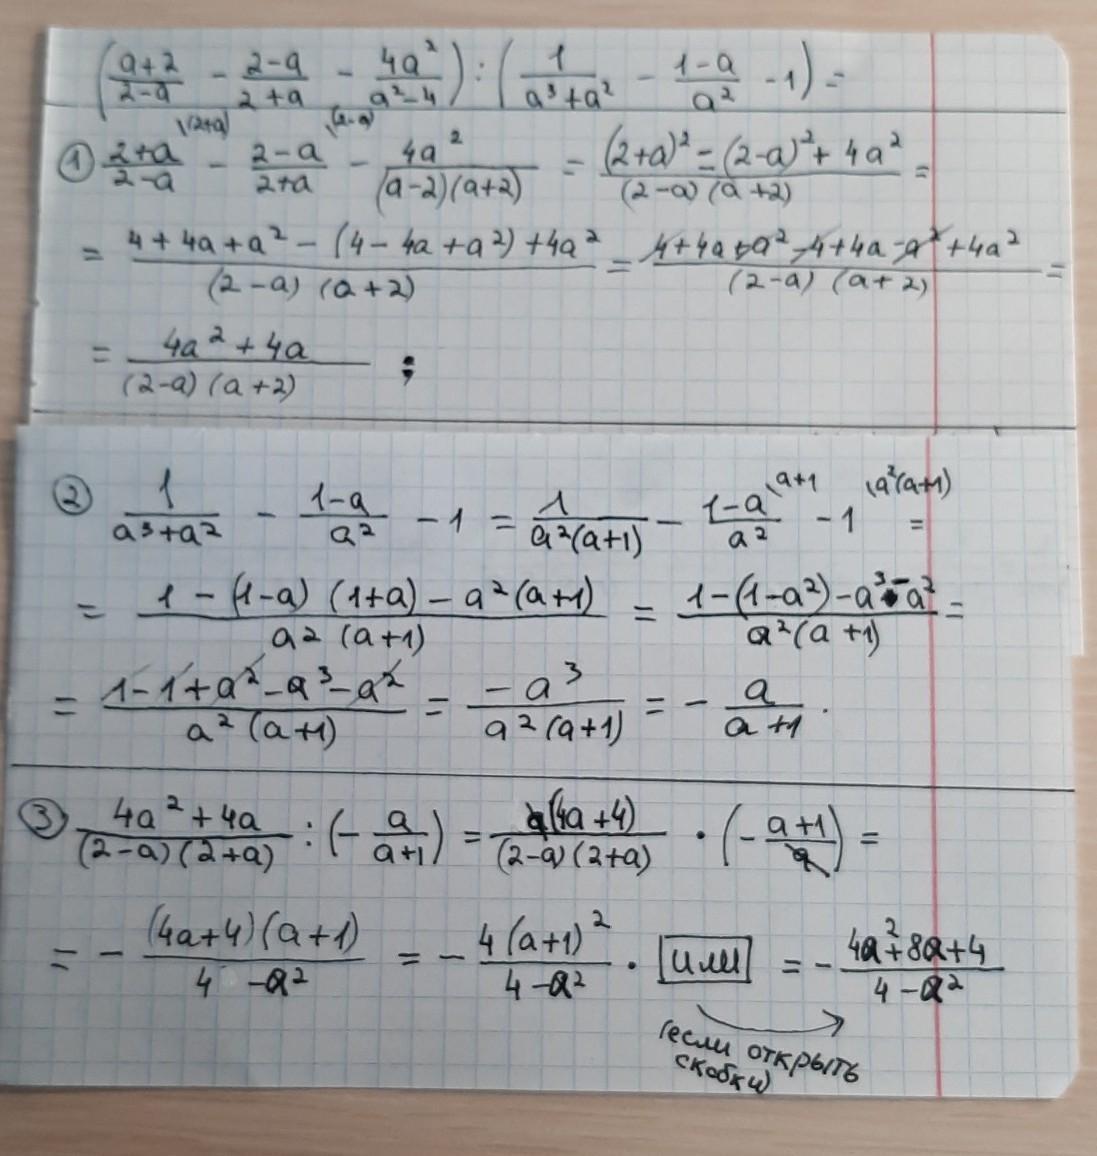 (a+2/2-a - 2-a/2+a - 4a²/a²-4) : (1/a³+a² - 1-a/a² -1) =
① 2+a/2-a \(2+a) - 2-a/2+a \(2-a) - 4a²/(a-2)(a+2) = (2+a)²=(2-a)²+4a²/(2-a)(a+2) =
= 4+4a+a²-(4-4a+a²)+4a²/(2-a)(a+2) = 4+4a+a²-4+4a-a²+4a²/(2-a)(a+2) =
= 4a²+4a/(2-a)(a+2) ;
② 1/a³+a² - 1-a/a² -1 = 1/a²(a+1) - 1-a/a² \a+1 -1 \a²(a+1) =
= 1-(1-a)(1+a)-a²(a+1)/a²(a+1) = 1-(1-a²)-a³-a²/a²(a+1) =
= 1-1+a²-a³-a²/a²(a+1) = -a³/a²(a+1) = - a/a+1 .
③ 4a²+4a/(2-a)(2+a) : (- a/a+1) = a(4a+4)/(2-a)(2+a) · (- a+1/a) =
= - (4a+4)(a+1)/4-a² = - 4(a+1)²/4-a² . или = - 4a²+8a+4/4-a²
(если открыть
скобки)